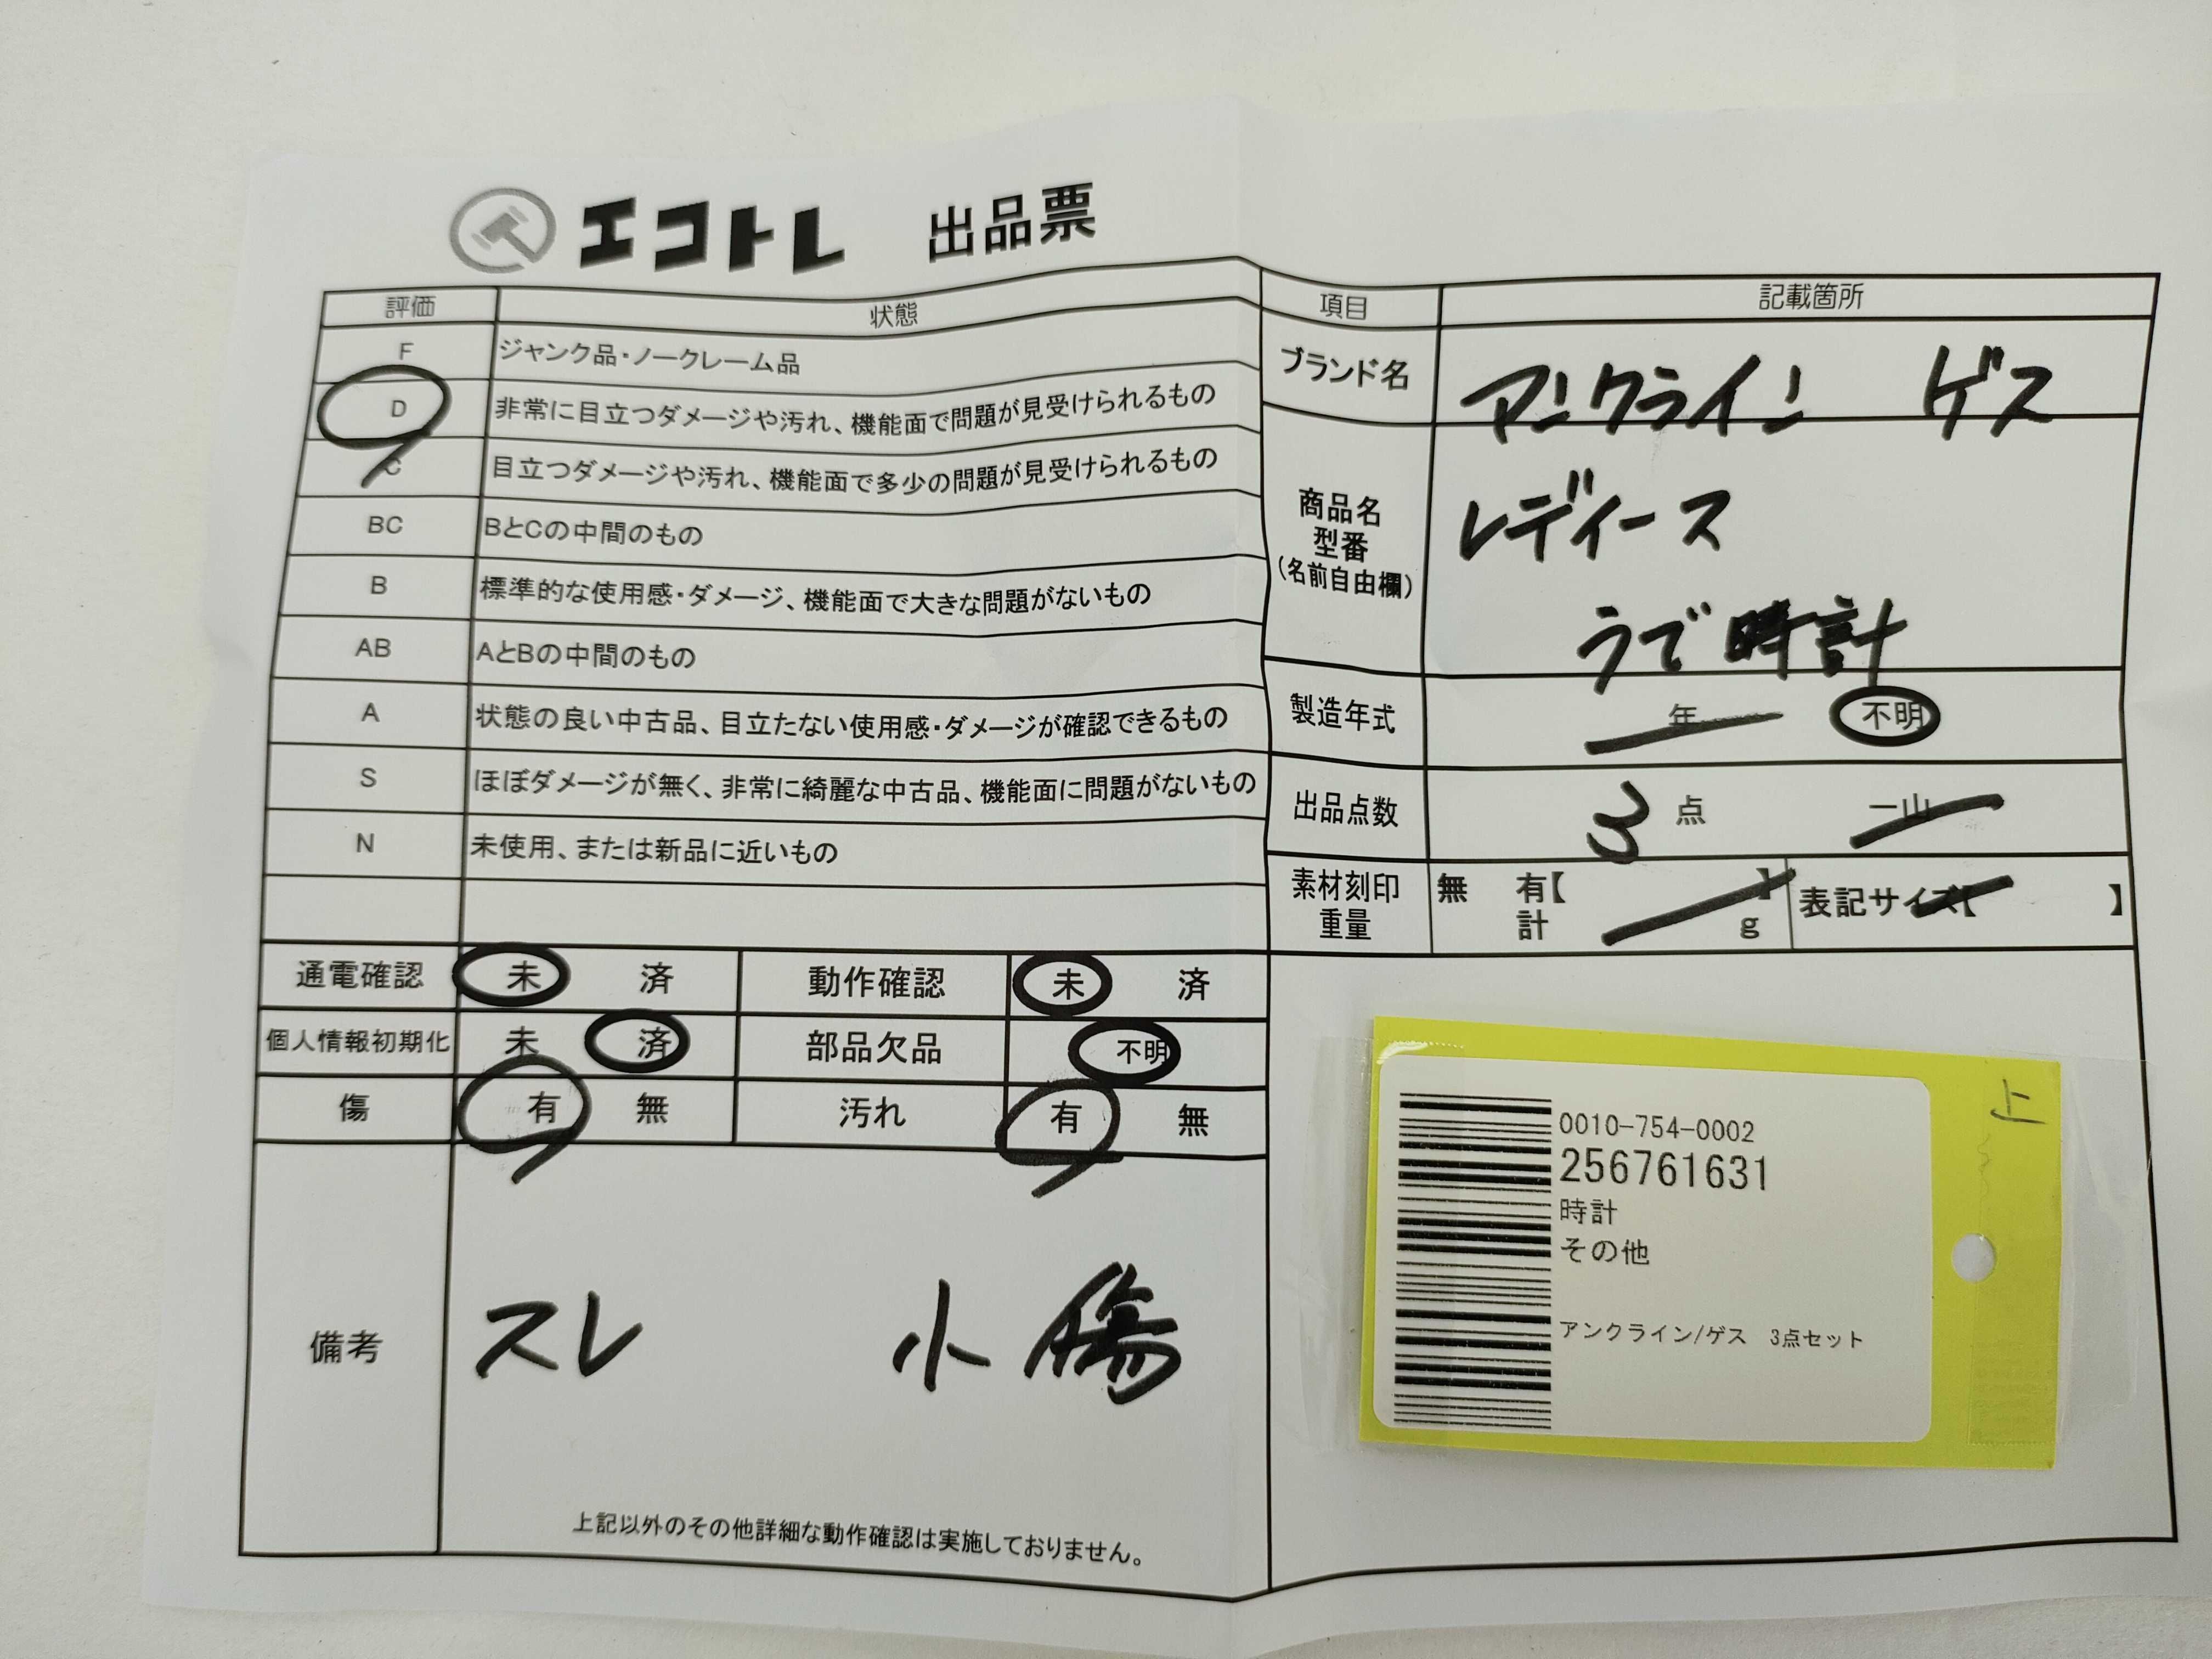 エコトレ 出品票
評価 状態
F ジャンク品・ノークレーム品
D 非常に目立つダメージや汚れ、機能面で問題が見受けられるもの
C 目立つダメージや汚れ、機能面で多少の問題が見受けられるもの
BC BとCの中間のもの
B 標準的な使用感・ダメージ、機能面で大きな問題がないもの
AB AとBの中間のもの
A 状態の良い中古品、目立たない使用感・ダメージが確認できるもの
S ほぼダメージが無く、非常に綺麗な中古品、機能面に問題がないもの
N 未使用、または新品に近いもの
通電確認 未 済 動作確認 未 済
個人情報初期化 未 済 部品欠品 不明
傷 有 無 汚れ 有 無
備考 スレ 小傷
上記以外のその他詳細な動作確認は実施しておりません。
項目 記載箇所
ブランド名 アンクライン ゲス
商品名
型番
(名前自由欄)
レディース
うで時計
製造年式 年 不明
出品点数 3 点 一山
素材刻印 無 有【 】 表記サイズ【 】
重量 計 g
上
0010-754-0002
256761631
時計
その他
アンクライン/ゲス 3点セット